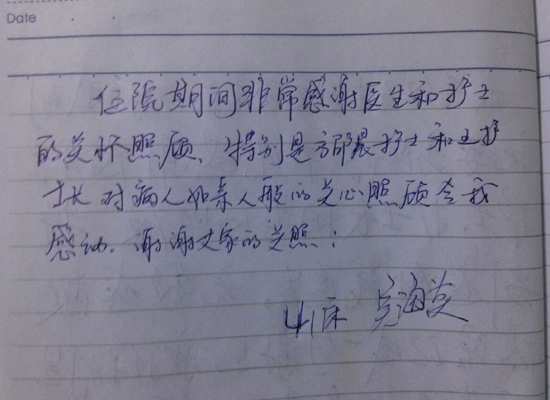 Date
住院期间非常感谢医生和护士
的关怀照顾、特别是邵晨护士和王护
士长对病人如亲人般的关心照顾令我
感动。谢谢大家的关照!
41床 海